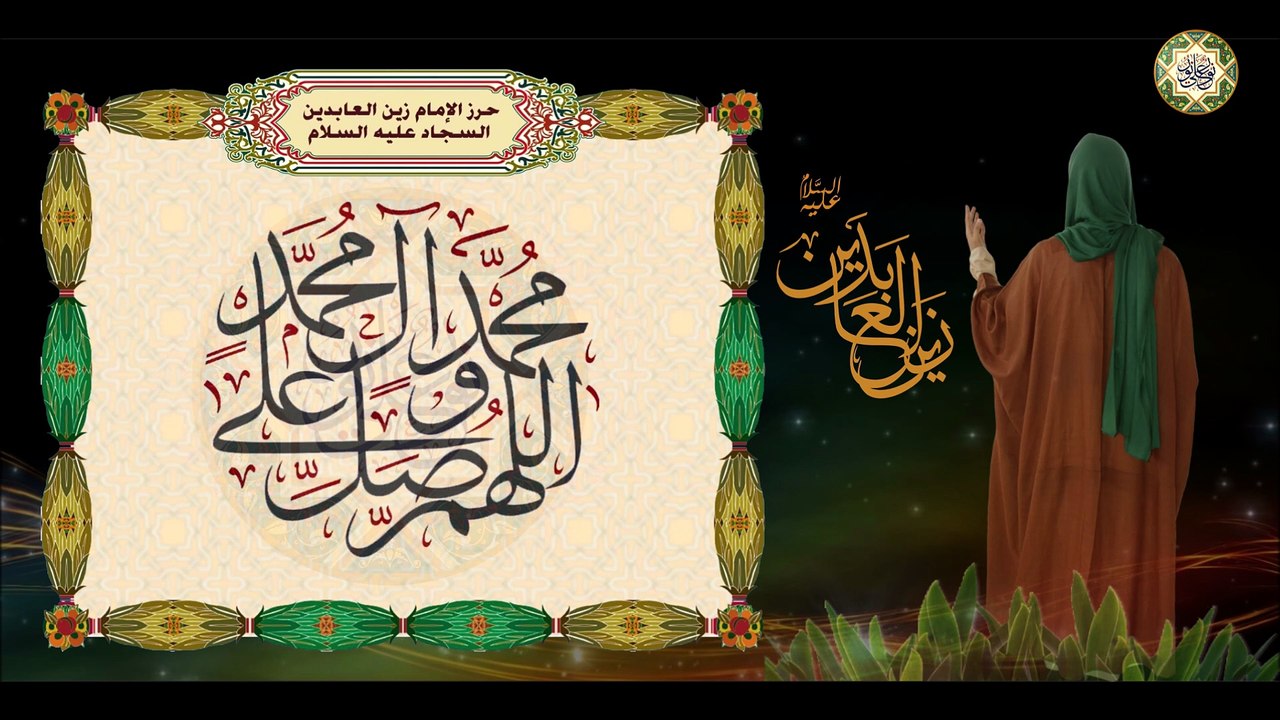 حرز الإمام زين العابدين
السجاد عليه السلام
اللهم صل على محمد وآل محمد
زين العابدين
عليه السلام